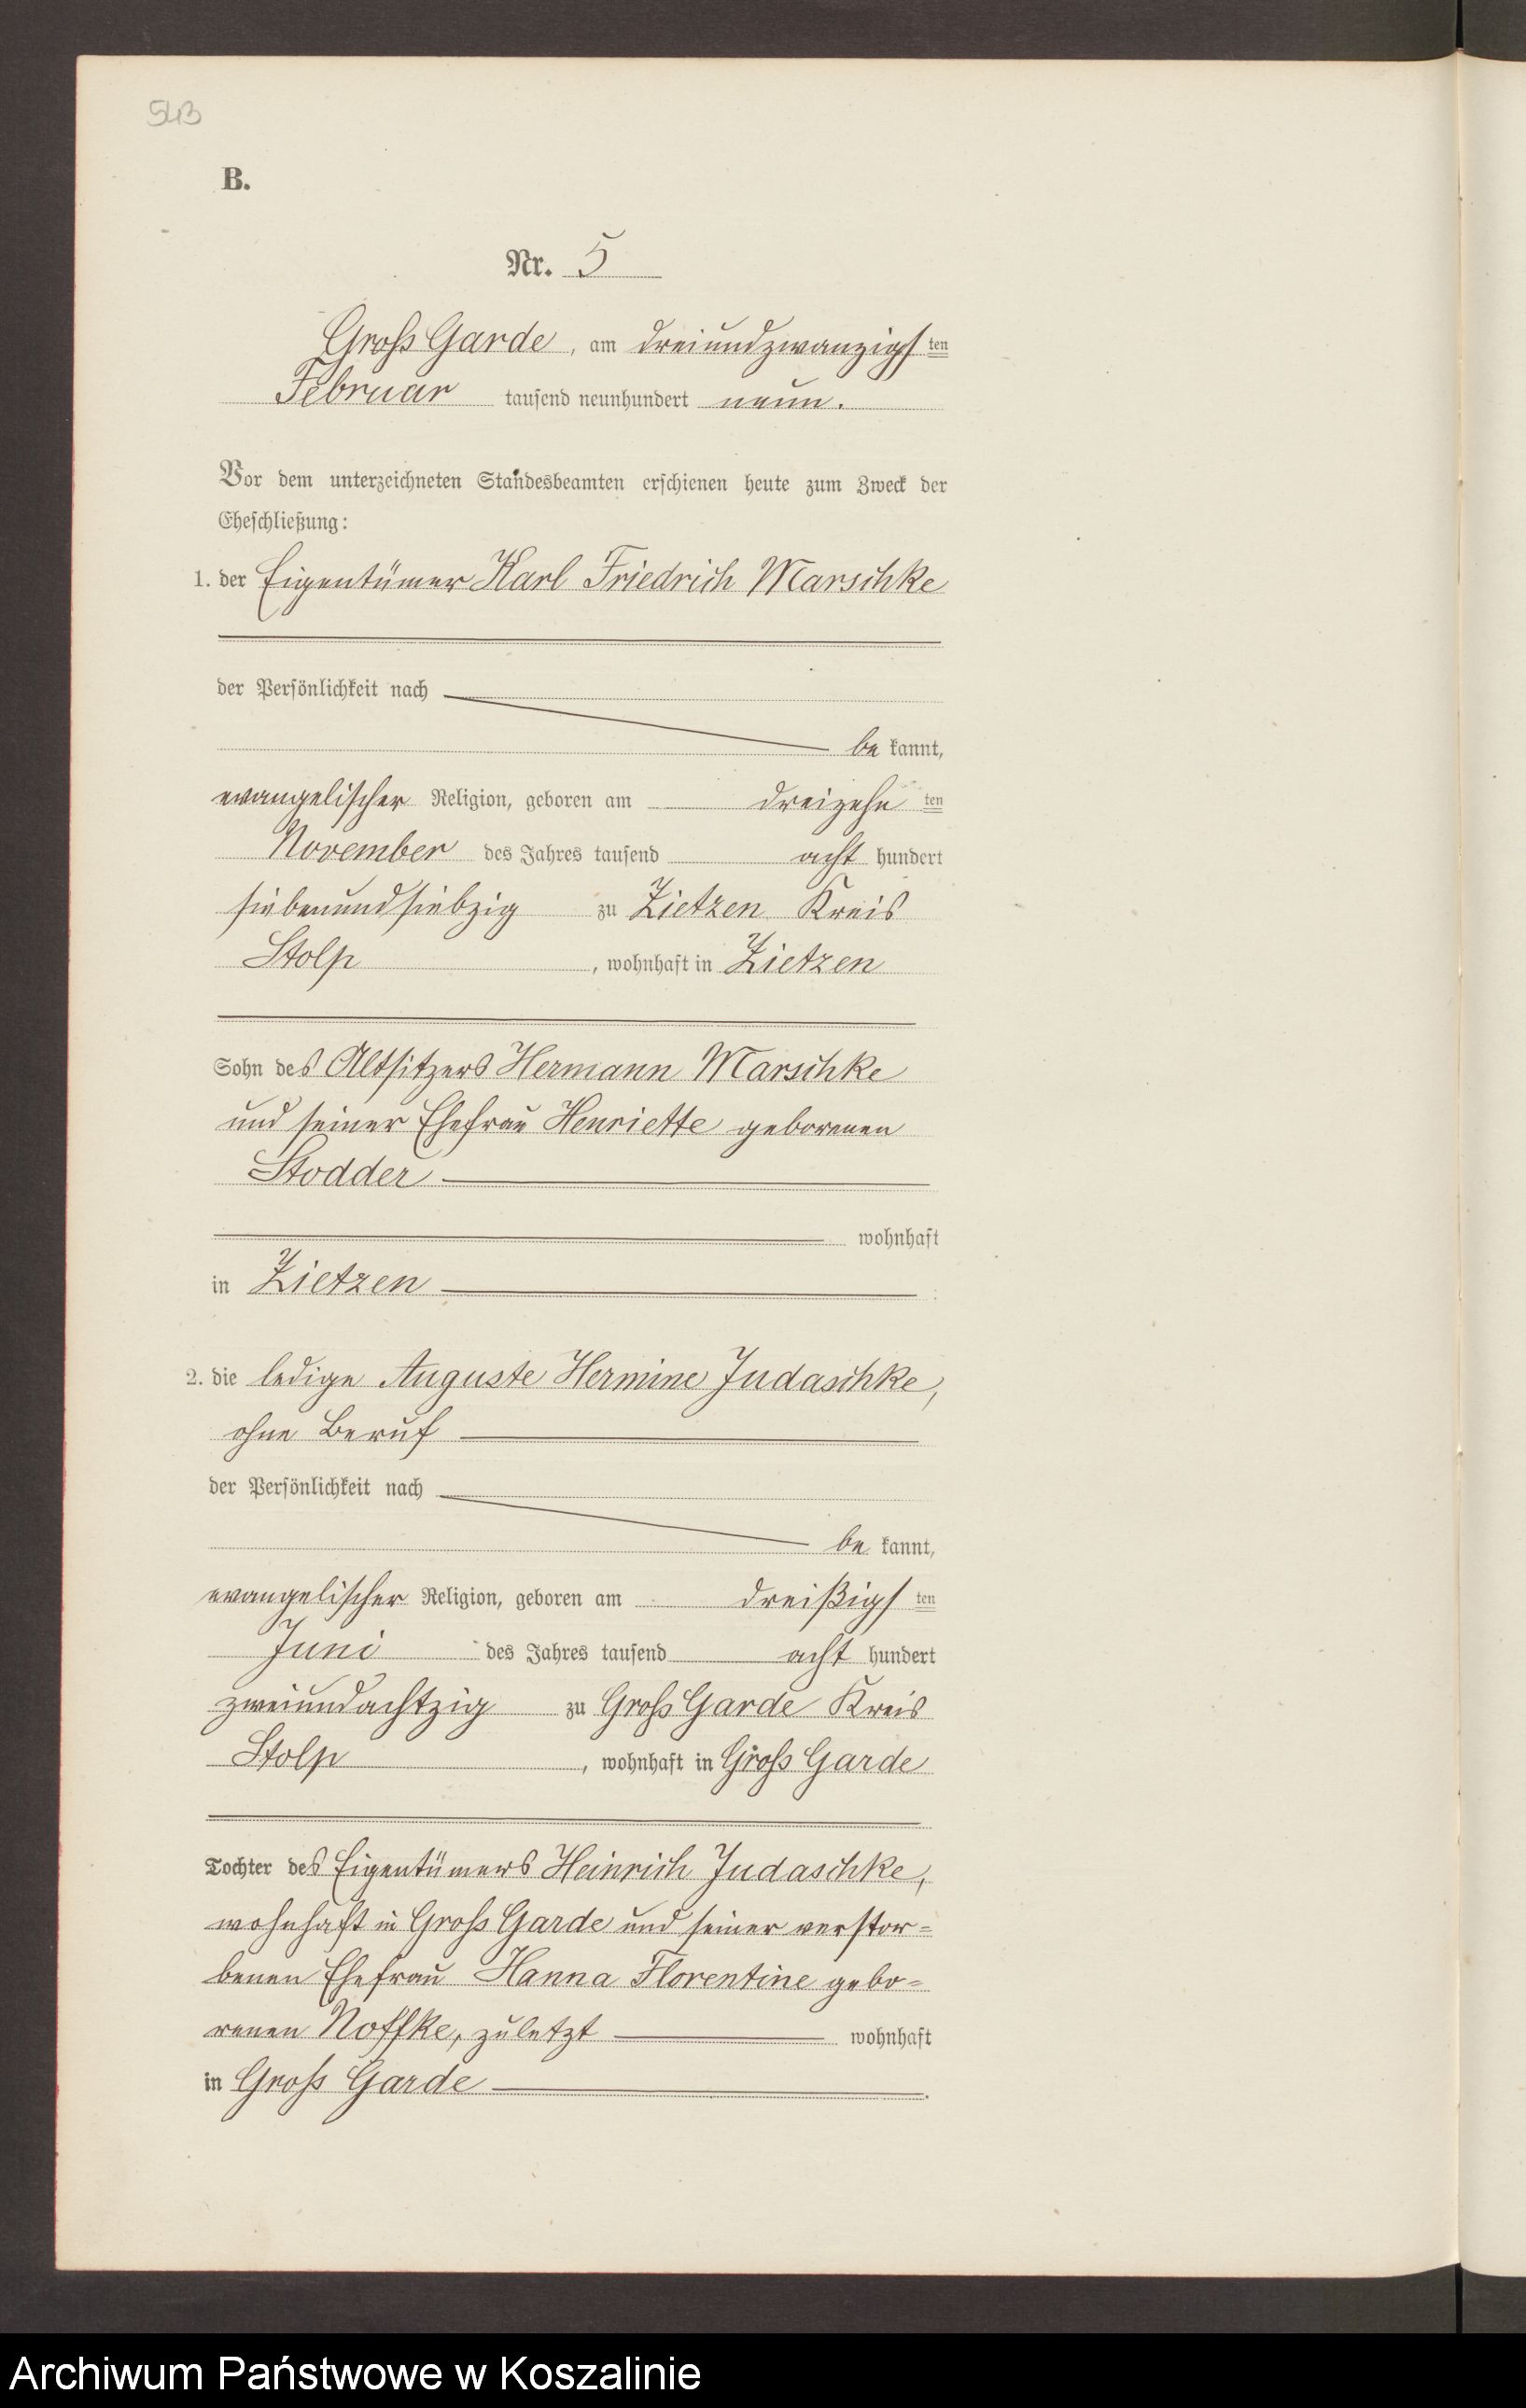 543
B.
Nr. 5
Gross Garde, am dreiundzwanzigsten
Februar tausend neunhundert neun.
Vor dem unterzeichneten Standesbeamten erschienen heute zum Zweck der
Eheschließung:
1. der Eigentümer Karl Friedrich Marschke
der Persönlichkeit nach
be kannt,
evangelischer Religion, geboren am dreizehn ten
November des Jahres tausend acht hundert
siebenundsiebzig zu Zietzen Kreis
Stolp, wohnhaft in Zietzen
Sohn des Altsitzers Hermann Marschke
und seiner Ehefrau Henriette geborenen
Stodder
wohnhaft
in Zietzen
2. die ledige Auguste Hermine Judaschke,
ohne Beruf
der Persönlichkeit nach
be kannt,
evangelischer Religion, geboren am dreißigsten
Juni des Jahres tausend acht hundert
zweiundachtzig zu Gross Garde Kreis
Stolp, wohnhaft in Gross Garde
Tochter des Eigentümers Heinrich Judaschke,
wohnhaft in Gross Garde und seiner verstor=
benen Ehefrau Hanna Florentine gebo=
renen Noffke, zuletzt wohnhaft
in Gross Garde
Archiwum Państwowe w Koszalinie